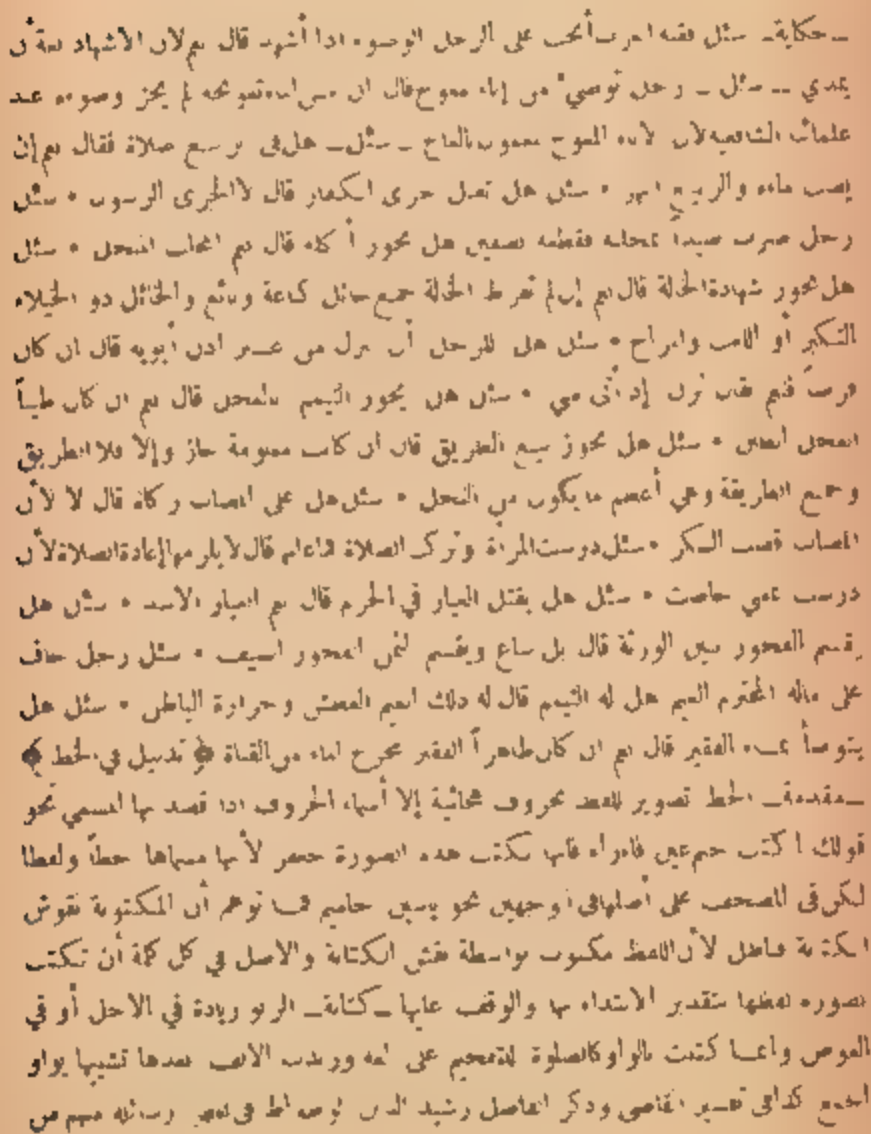 ـ حكاية ـ سئل فقيه العرب أيجب على الرجل الوضوء اذا أشهد قال نعم لان الأشهاد لغة أن
يمذي ــ سئل ـ رجل توضئ من إناء معوج فقال ان مس الماء تعويجه لم يجز وضوءه عند
علمائنا الشافعية لان الاناء المعوج المضبب بالعاج ـ سئل ـ هل في ربيع صلاة فقال نعم إن
نضب ماءه والربيع النهر • سئل هل تصل جرى الكفار قال لا الجرى الرسول • سئل
رجل ضرب صيداً بمحلبه فقطعه نصفين هل يجوز أكله قال نعم المحلب المنجل • سئل
هل تجوز شهادة الخالة قال نعم إن لم تفرط الخالة جمع خائل كباعة وبائع والخائل ذو الخيلاء
التكبر أو اللعب والمراح • سئل هل للرجل أن من غير اذن أبويه قال ان كان
فرضاً فنعم يقال نزل إذ أتى منى • سئل هل يجوز التيمم قال نعم ان كان طيباً
• سئل هل يجوز بيع الطريق قال ان كانت معلومة جاز وإلا فلا الطريق
وجمع الطريقة وهي أعظم ما يكون من النخل • سئل هل على القصاب زكاة قال لا لأن
القصاب قصب السكر • سئل درست المرأة وتركت الصلاة قال لا يلزمها إعادة الصلاة لأن
درست بمعنى حاضت • سئل هل يقتل العيار في الحرم قال نعم العيار الأسد • سئل هل
يقسم العجوز بين الورثة قال بل يباع ويقسم الثمن العجوز السيف • سئل رجل خاف
على ماله المحترم الغيم هل له التيمم قال له ذلك الغيم العطش وحرارة الباطن • سئل هل
يتوضأ بماء الفقير قال نعم ان كان طاهراً الفقير مخرج الماء من القناة ﴿ تذييل في الخط ﴾
ـ مقدمة ـ الخط تصوير للفظ بحروف هجائية إلا أسماء الحروف اذا قصد بها المسمى نحو
قولك اكتب جيم عين فاء راء فانما تكتب هذه الصورة جعفر لأنها مسماها خطاً ولفظا
لكن في المصحف على أصلها في أوجهين نحو ياسين حاميم فما توهم أن المكتوبة نقوش
الكتابة فباطل لأن اللفظ مكتوب بواسطة نقش الكتابة والاصل في كل كلمة أن تكتب
بصورة لفظها بتقدير الابتداء بها والوقف عليها ـ كتابة ـ الربو زيادة في الاجل أو في
العوض وانما كتبت بالواو كالصلوة للتفخيم على لغة وزيدت الالف بعدها تشبيها بواو
الجمع كذا في تفسير القاضي وذكر الفاضل رشيد الدين الوطواط في بعض رسائله منهم من